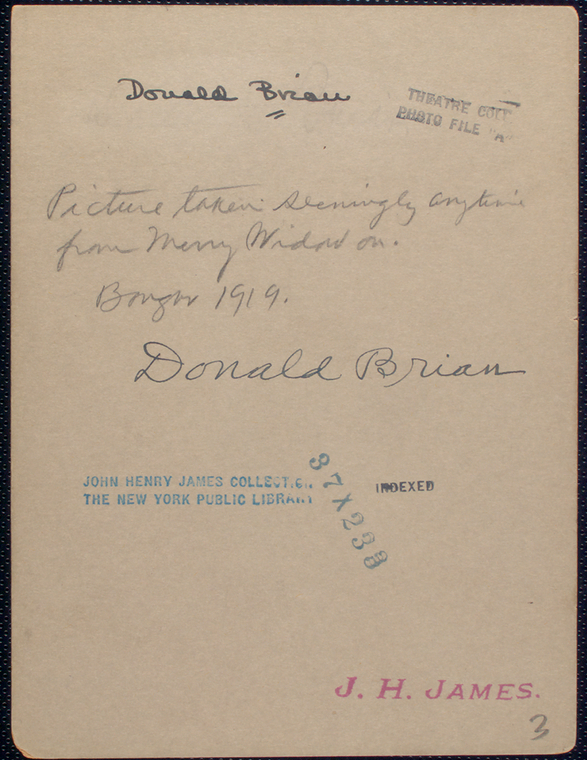 Donald Brian
THEATRE COLL
PHOTO FILE "A"
Picture taken seemingly anytime
from Merry Widow on.
Bangor 1919.
Donald Brian
JOHN HENRY JAMES COLLECTION
THE NEW YORK PUBLIC LIBRARY
37X233
INDEXED
J. H. JAMES.
3